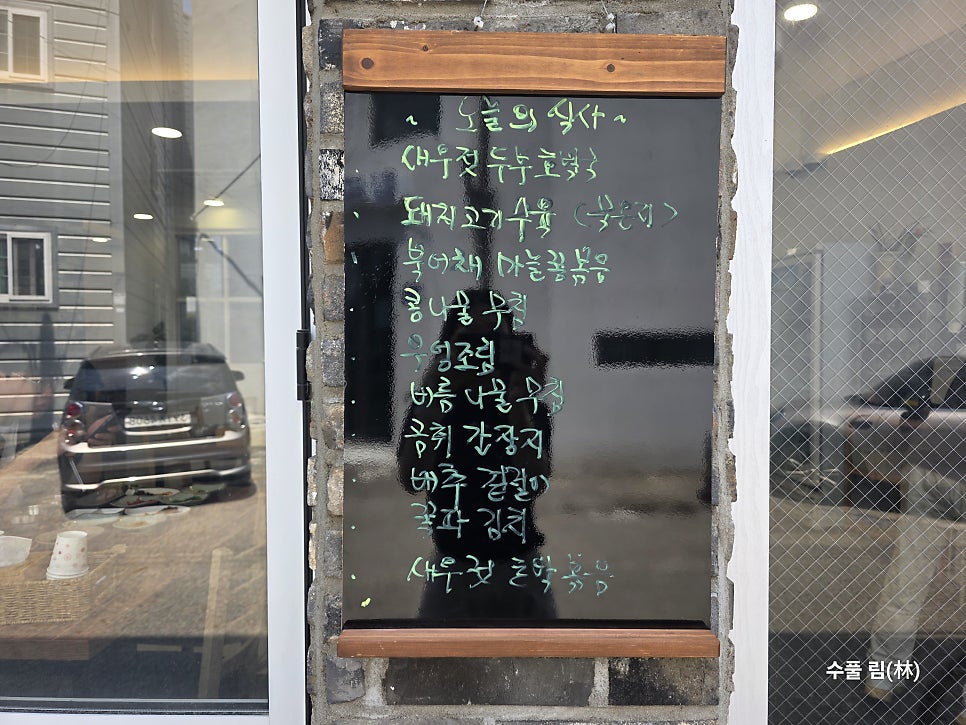 ~ 오늘의 식사 ~
새우젓 두부 호박국
돼지고기 수육 (묵은지)
북어채 마늘쫑 볶음
콩나물 무침
우엉조림
비름 나물 무침
곰취 간장지
배추 겉절이
쪽파 김치
새우젓 호박 볶음
수풀 림(林)